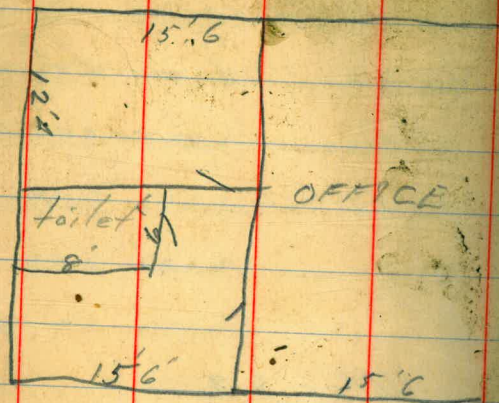 15'6
12'
OFFICE
toilet
8'
15'6"
15'6